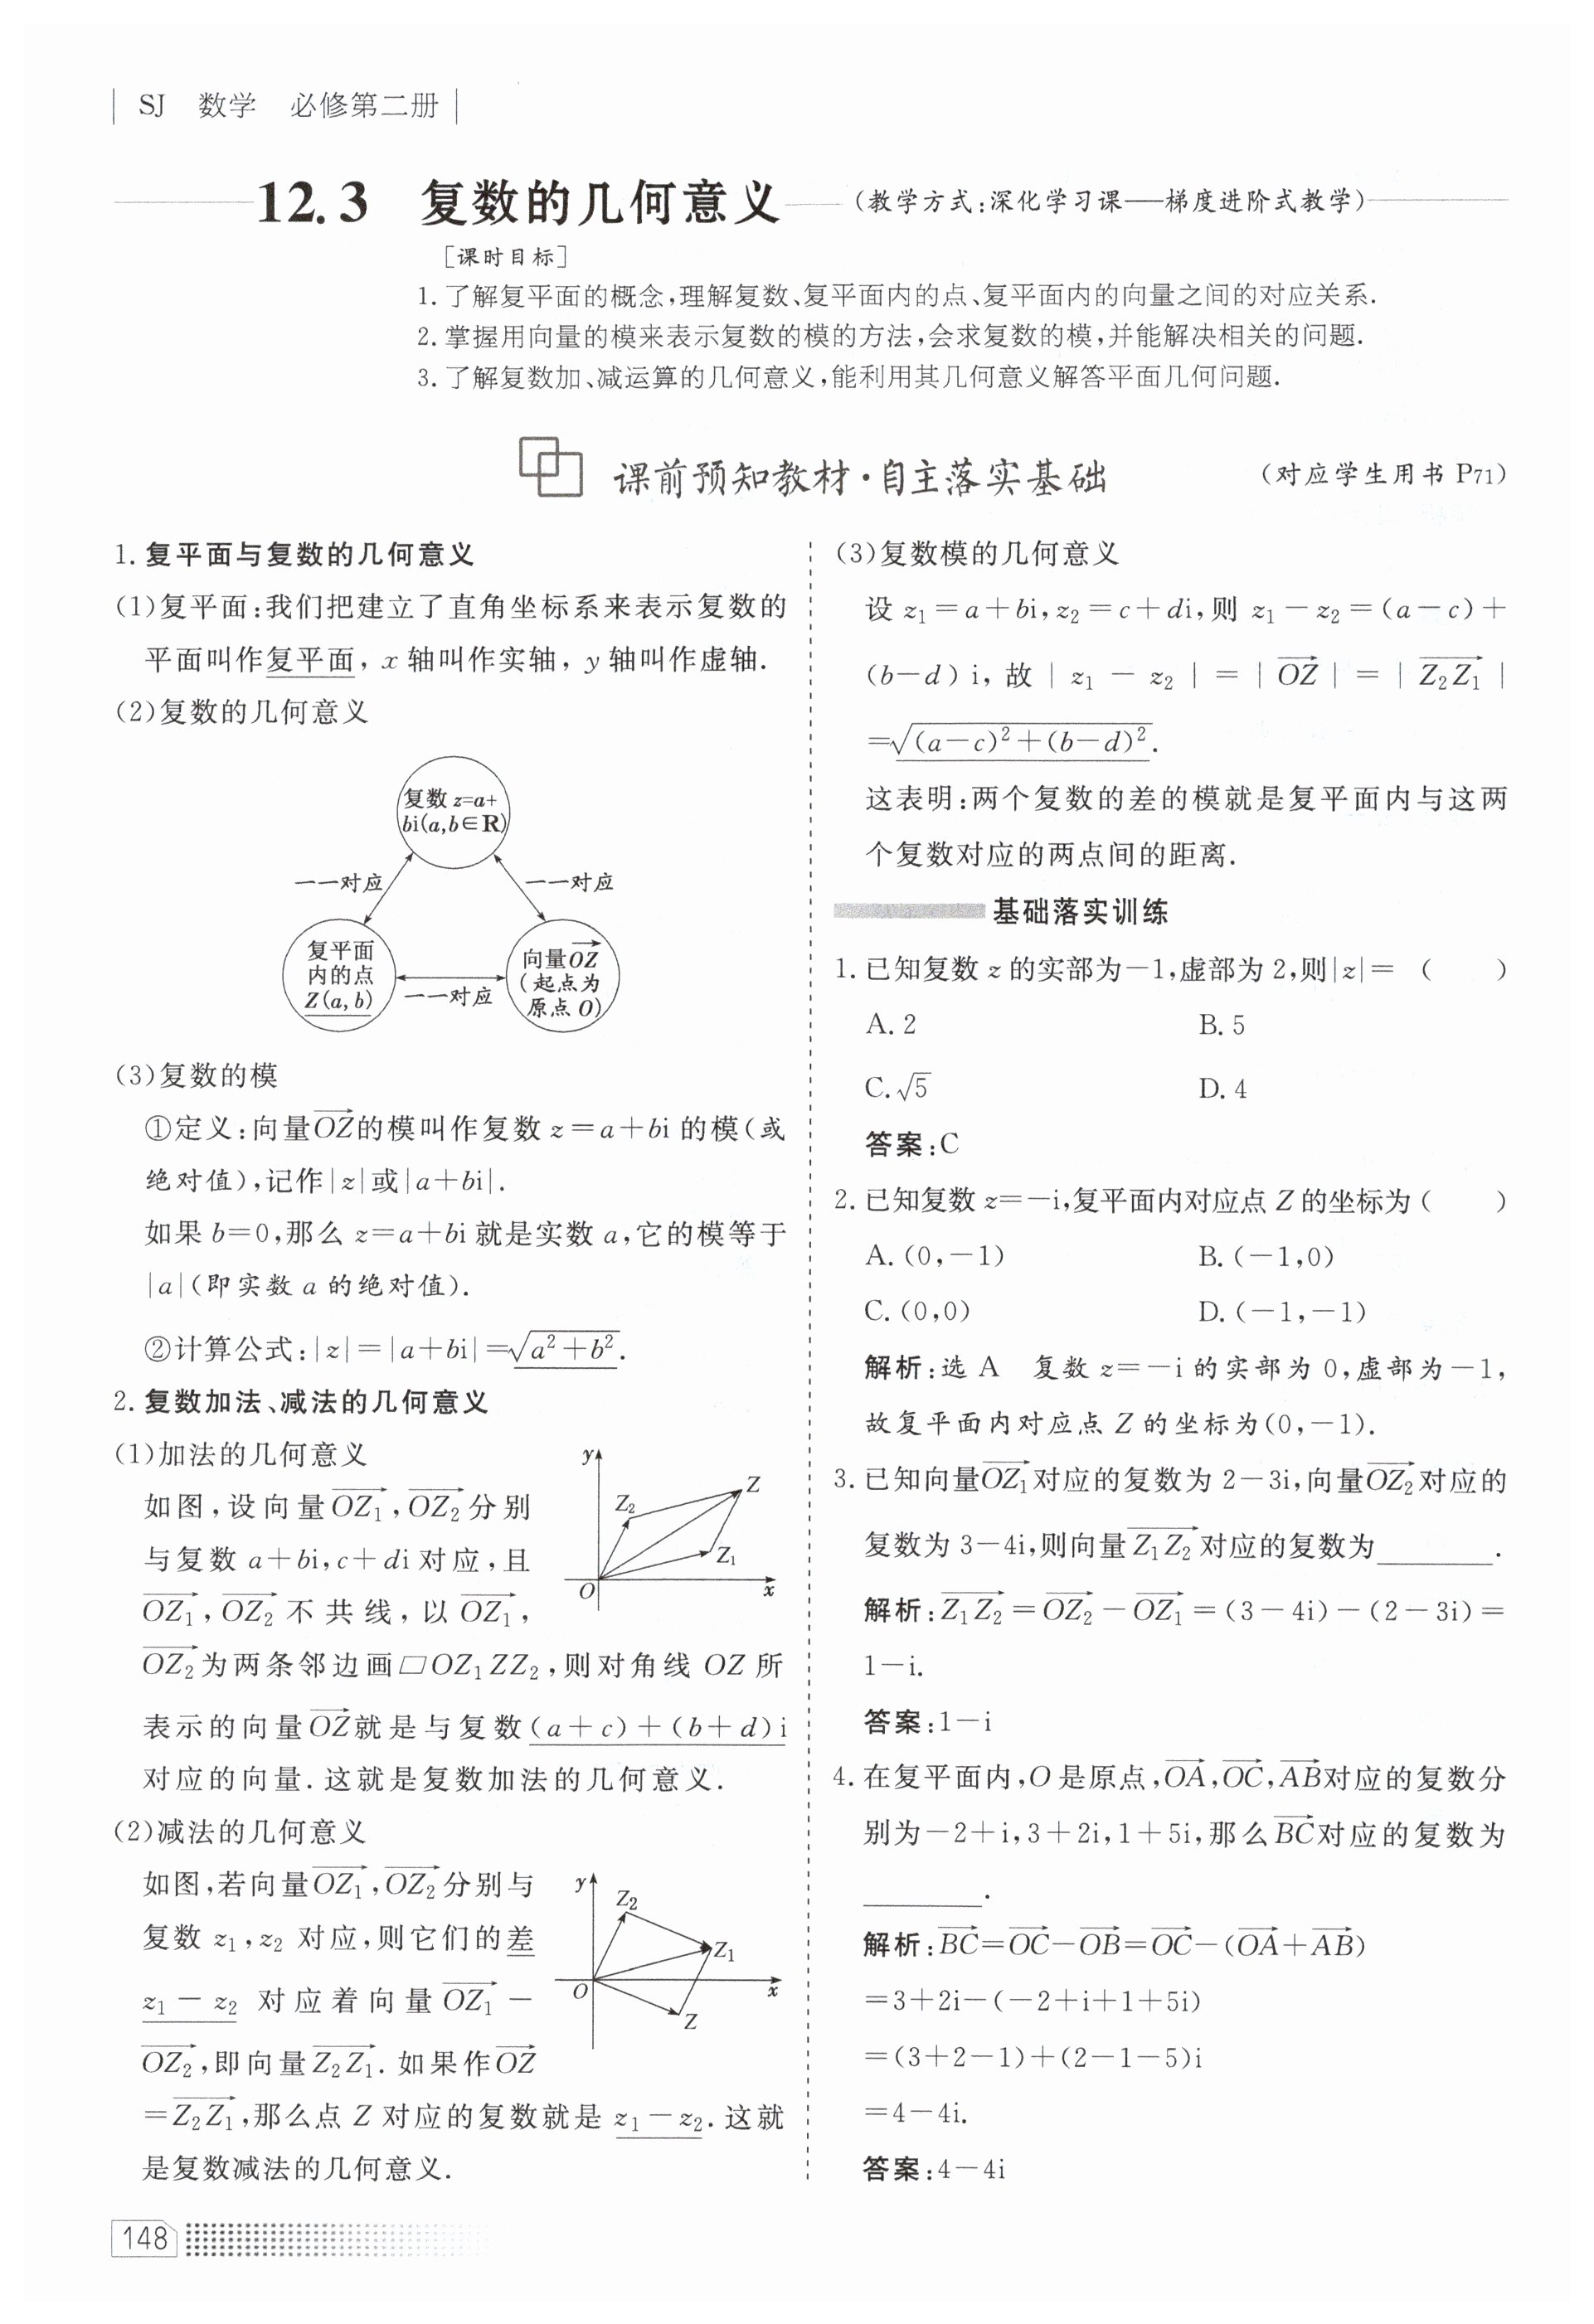 SJ 数学 必修第二册
12.3 复数的几何意义 (教学方式:深化学习课——梯度进阶式教学)
[课时目标]
1. 了解复平面的概念,理解复数、复平面内的点、复平面内的向量之间的对应关系.
2. 掌握用向量的模来表示复数的模的方法,会求复数的模,并能解决相关的问题.
3. 了解复数加、减运算的几何意义,能利用其几何意义解答平面几何问题.
课前预知教材·自主落实基础 (对应学生用书 P71)
1. 复平面与复数的几何意义
(1)复平面:我们把建立了直角坐标系来表示复数的
平面叫作复平面, x 轴叫作实轴, y 轴叫作虚轴.
(2)复数的几何意义
复数 z=a+
bi(a,b∈R)
一一对应 一一对应
复平面
内的点
Z(a,b)
一一对应
向量\overrightarrow{OZ}
(起点为
原点 O)
(3)复数的模
①定义:向量\overrightarrow{OZ}的模叫作复数 z=a+bi 的模(或
绝对值),记作|z|或|a+bi|.
如果 b=0,那么 z=a+bi 就是实数 a,它的模等于
|a|(即实数 a 的绝对值).
②计算公式:|z|=|a+bi|=√(a²+b²).
2. 复数加法、减法的几何意义
(1)加法的几何意义
如图,设向量\overrightarrow{OZ₁},\overrightarrow{OZ₂}分别
与复数 a+bi,c+di 对应,且
\overrightarrow{OZ₁},\overrightarrow{OZ₂}不共线,以\overrightarrow{OZ₁},
y
Z
Z₂
Z₁
O
x
\overrightarrow{OZ₂}为两条邻边画▱OZ₁ZZ₂,则对角线 OZ 所
表示的向量\overrightarrow{OZ}就是与复数(a+c)+(b+d)i
对应的向量. 这就是复数加法的几何意义.
(2)减法的几何意义
如图,若向量\overrightarrow{OZ₁},\overrightarrow{OZ₂}分别与
复数 z₁,z₂ 对应,则它们的差
z₁-z₂ 对应着向量\overrightarrow{OZ₁}-
\overrightarrow{OZ₂},即向量\overrightarrow{Z₂Z₁}. 如果作\overrightarrow{OZ}
y
Z₂
Z₁
O
x
Z
=\overrightarrow{Z₂Z₁},那么点 Z 对应的复数就是 z₁-z₂. 这就
是复数减法的几何意义.
(3)复数模的几何意义
设 z₁=a+bi,z₂=c+di,则 z₁-z₂=(a-c)+
(b-d)i,故|z₁-z₂|=|\overrightarrow{OZ}|=|\overrightarrow{Z₂Z₁}|
=√((a-c)²+(b-d)²).
这表明:两个复数的差的模就是复平面内与这两
个复数对应的两点间的距离.
基础落实训练
1. 已知复数 z 的实部为-1,虚部为 2,则|z|= ( )
A. 2 B. 5
C. √5 D. 4
答案:C
2. 已知复数 z=-i,复平面内对应点 Z 的坐标为( )
A. (0,-1) B. (-1,0)
C. (0,0) D. (-1,-1)
解析:选 A 复数 z=-i 的实部为 0,虚部为-1,
故复平面内对应点 Z 的坐标为(0,-1).
3. 已知向量\overrightarrow{OZ₁}对应的复数为 2-3i,向量\overrightarrow{OZ₂}对应的
复数为 3-4i,则向量\overrightarrow{Z₁Z₂}对应的复数为________.
解析:\overrightarrow{Z₁Z₂}=\overrightarrow{OZ₂}-\overrightarrow{OZ₁}=(3-4i)-(2-3i)=
1-i.
答案:1-i
4. 在复平面内,O 是原点,\overrightarrow{OA},\overrightarrow{OC},\overrightarrow{AB}对应的复数分
别为-2+i,3+2i,1+5i,那么\overrightarrow{BC}对应的复数为
________.
解析:\overrightarrow{BC}=\overrightarrow{OC}-\overrightarrow{OB}=\overrightarrow{OC}-(\overrightarrow{OA}+\overrightarrow{AB})
=3+2i-(-2+i+1+5i)
=(3+2-1)+(2-1-5)i
=4-4i.
答案:4-4i
148